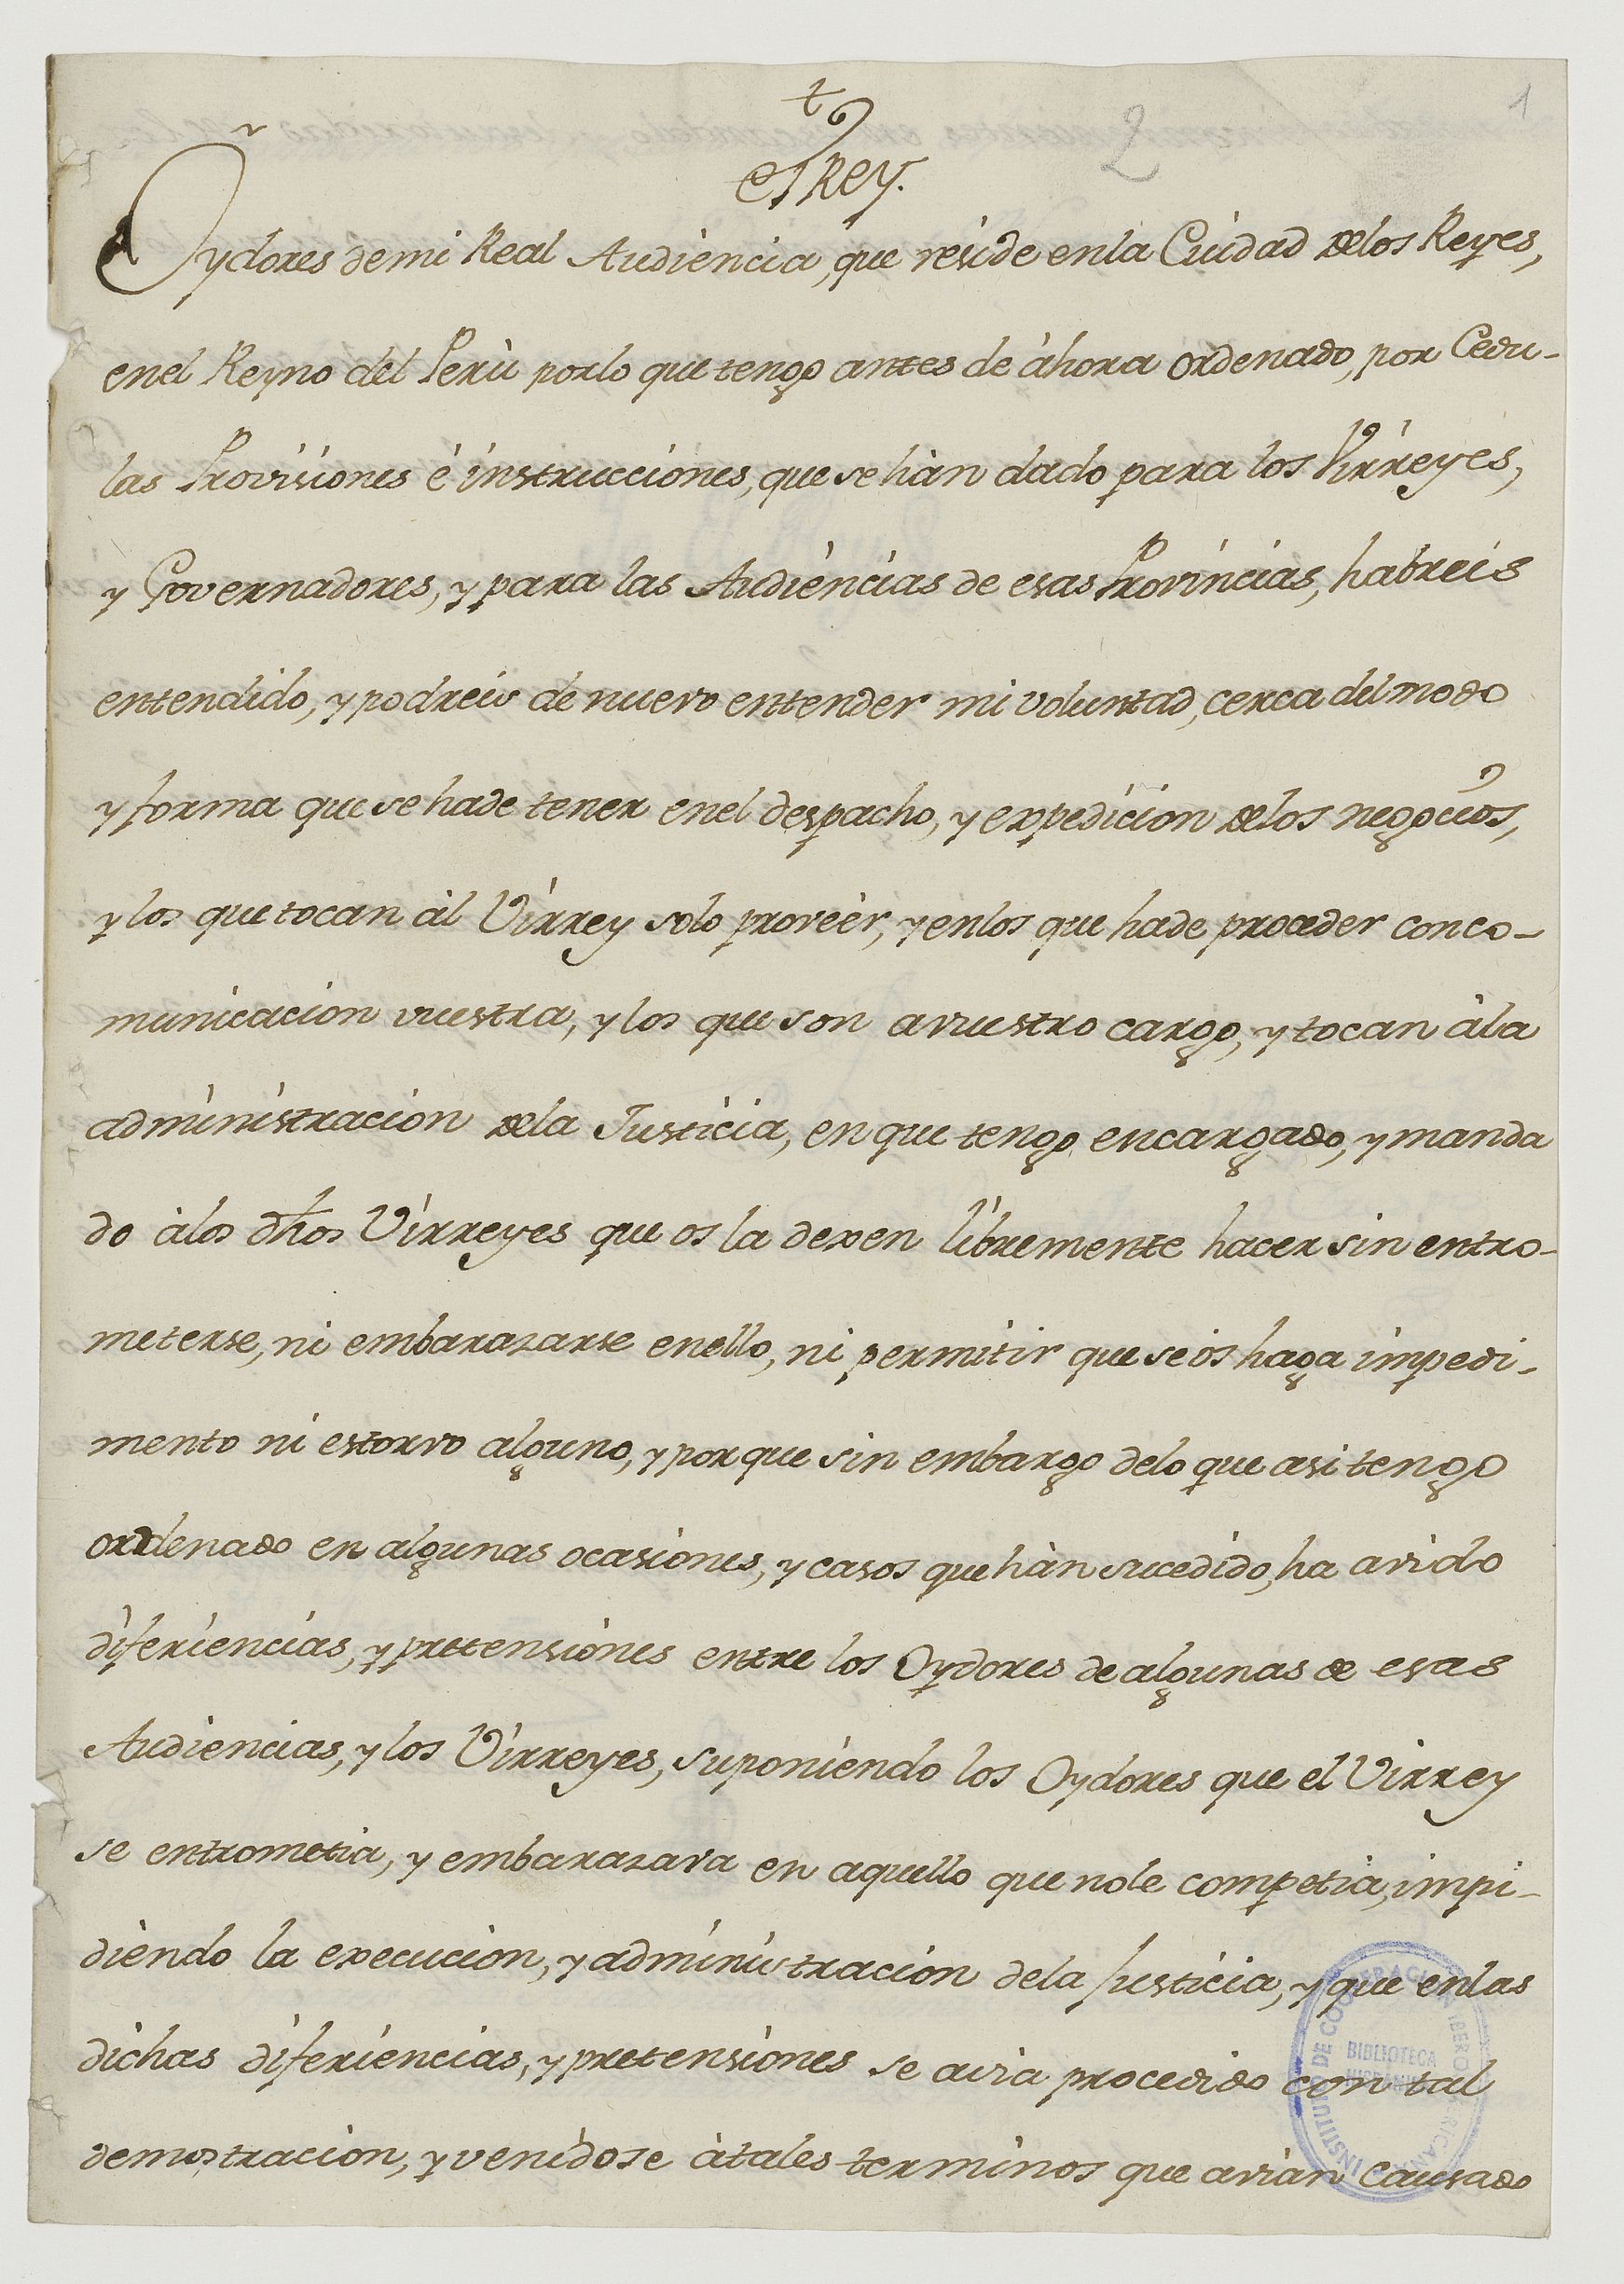 t
El Rey.
2
1
Oydores de mi Real Audiencia, que reside en la Ciudad de los Reyes,
en el Reyno del Perù por lo que tengo antes de àhora ordenado, por Cedu-
las Provisiones è instrucciones, que se hàn dado para los Virreyes,
y Governadores, y para las Audiencias de esas Provincias, habreis
entendido, y podreis de nuevo entender mi voluntad, cerca del modo
y forma que se hade tener en el despacho, y expedicion de los negocios,
y los que tocan àl Virrey solo proveèr, y en los que hade proceder con co-
municacion vuestra, y los que son a vuestro cargo, y tocan àla
administracion dela Justicia, en que tengo encargado, y manda
do àlos dhos Virreyes que os la dexen libremente hacer sin entro-
meterse, ni embarazarse enello, ni permitir que se òs haga impedi-
mento ni estorvo alguno, y por que sin embargo delo que asi tengo
ordenado en algunas ocasiones, y casos que hàn sucedido, ha avido
diferiencias, y pretensiones entre los Oydores de algunas de esas
Audiencias, y los Virreyes, suponiendo los Oydores que el Virrey
se entrometia, y embarazava en aquello que nole competia, impi-
diendo la execucion, y administracion dela Justicia, y que enlas
dichas diferiencias, y pretensiones se avia procedido con tal
demostracion, y venidose àtales terminos que avian causado
INSTITUTO DE COOPERACION IBEROAMERICANA
BIBLIOTECA
HISPANICA